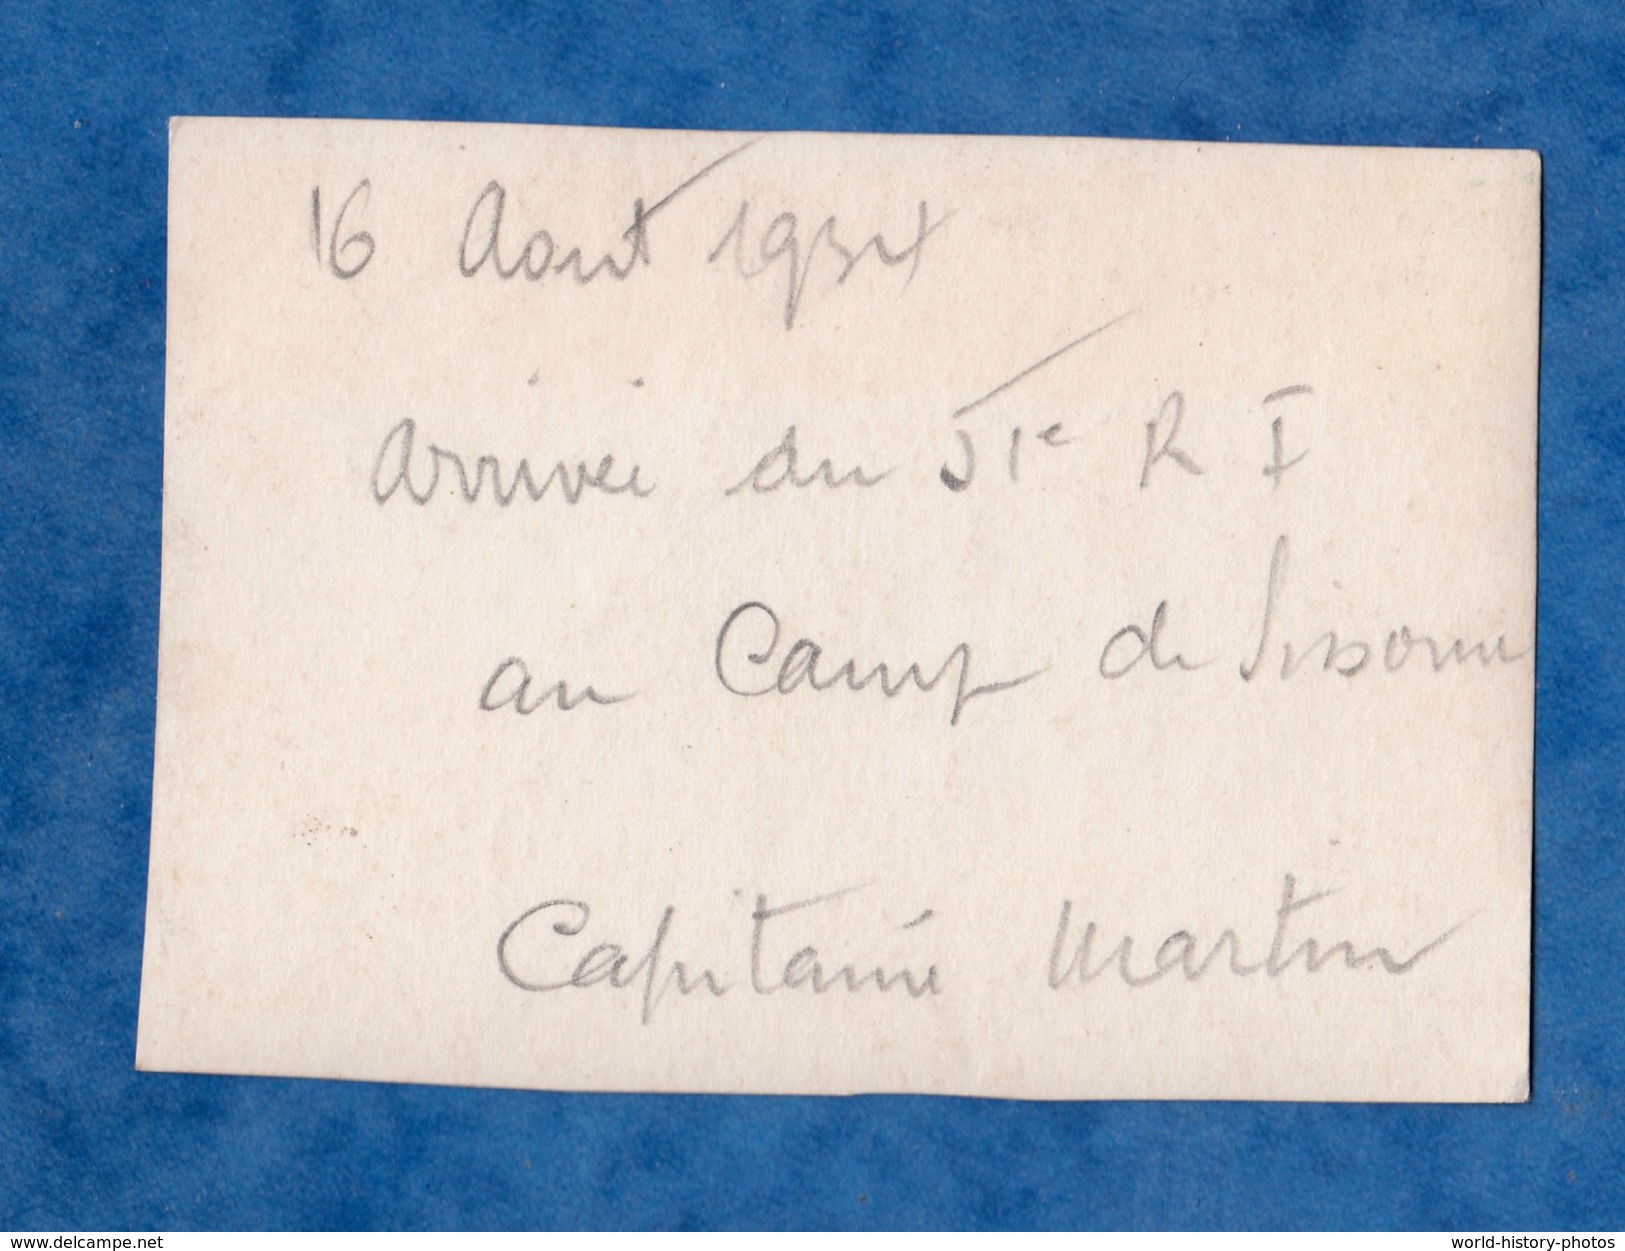 16 Aout 1934
Arrivée du 51e R I
au Camp de Sissonne
Capitaine Martin
www.delcampe.net
world-history-photos